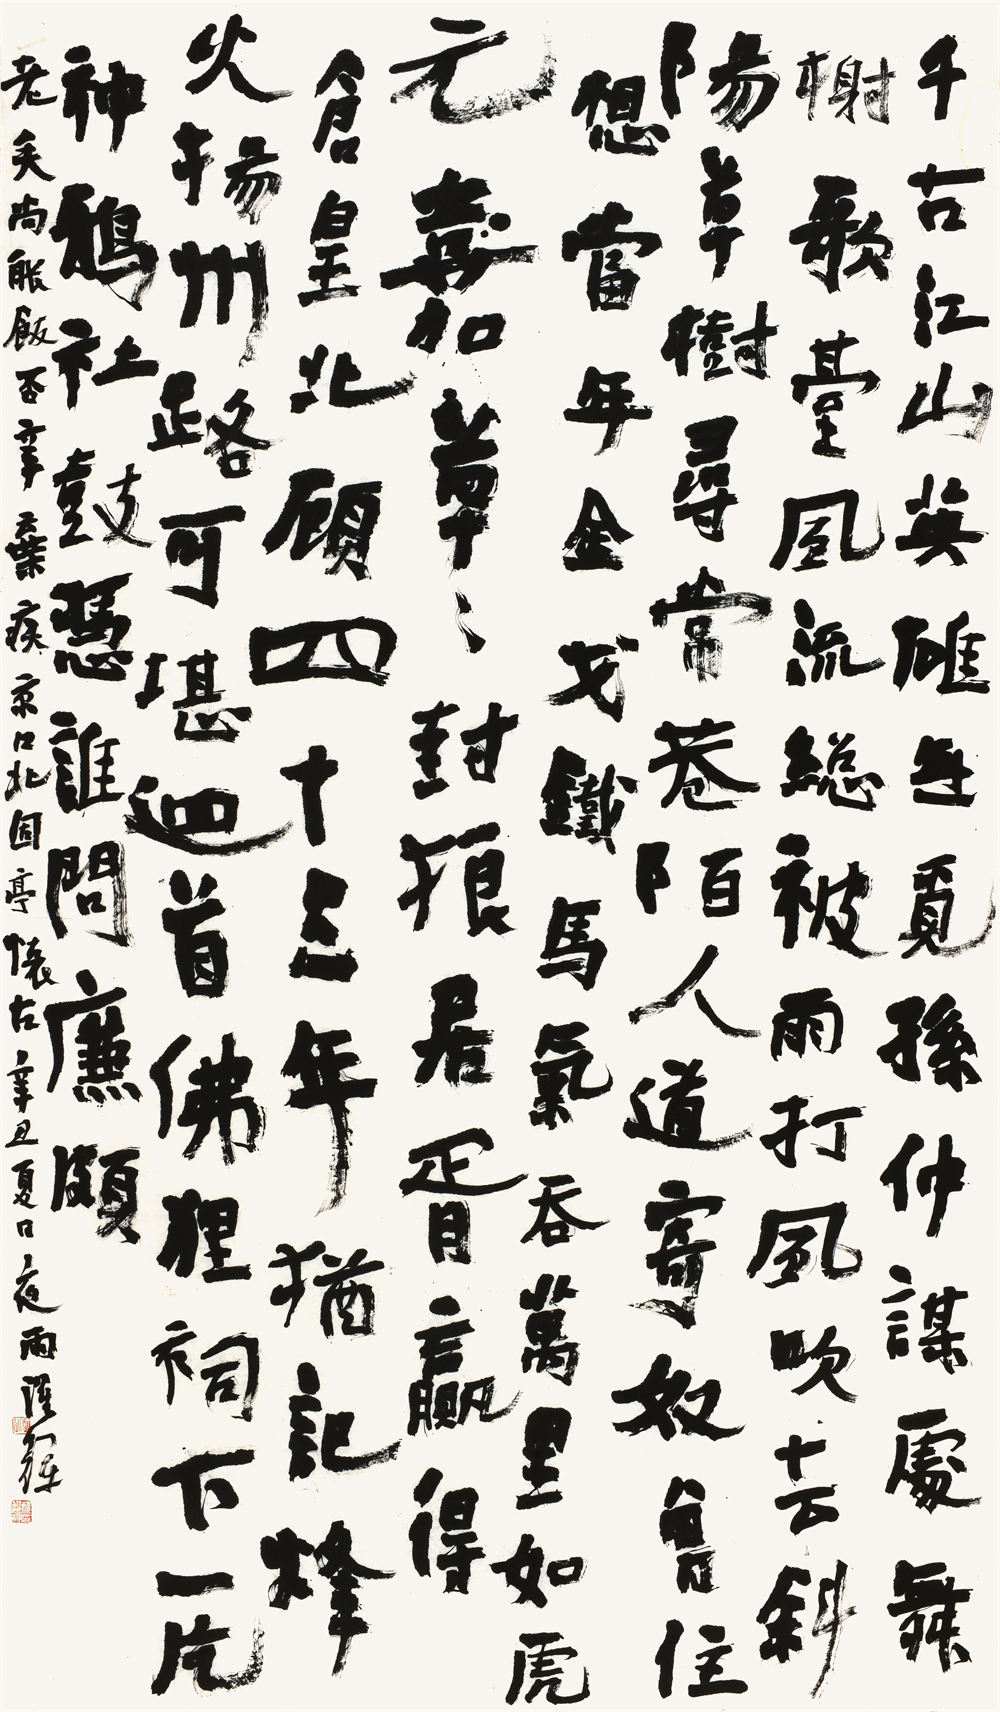 千古江山英雄無覓孫仲謀處舞
榭歌臺風流總被雨打風吹去斜
陽草樹尋常巷陌人道寄奴曾住
想當年金戈鐵馬氣吞萬里如虎
元嘉草〻封狼居胥贏得
倉皇北顧四十三年猶記烽
火揚州路可堪迴首佛狸祠下一片
神鴉社鼓憑誰問廉頗
老矣尚能飯否辛棄疾京口北固亭懷古辛丑夏日夜雨